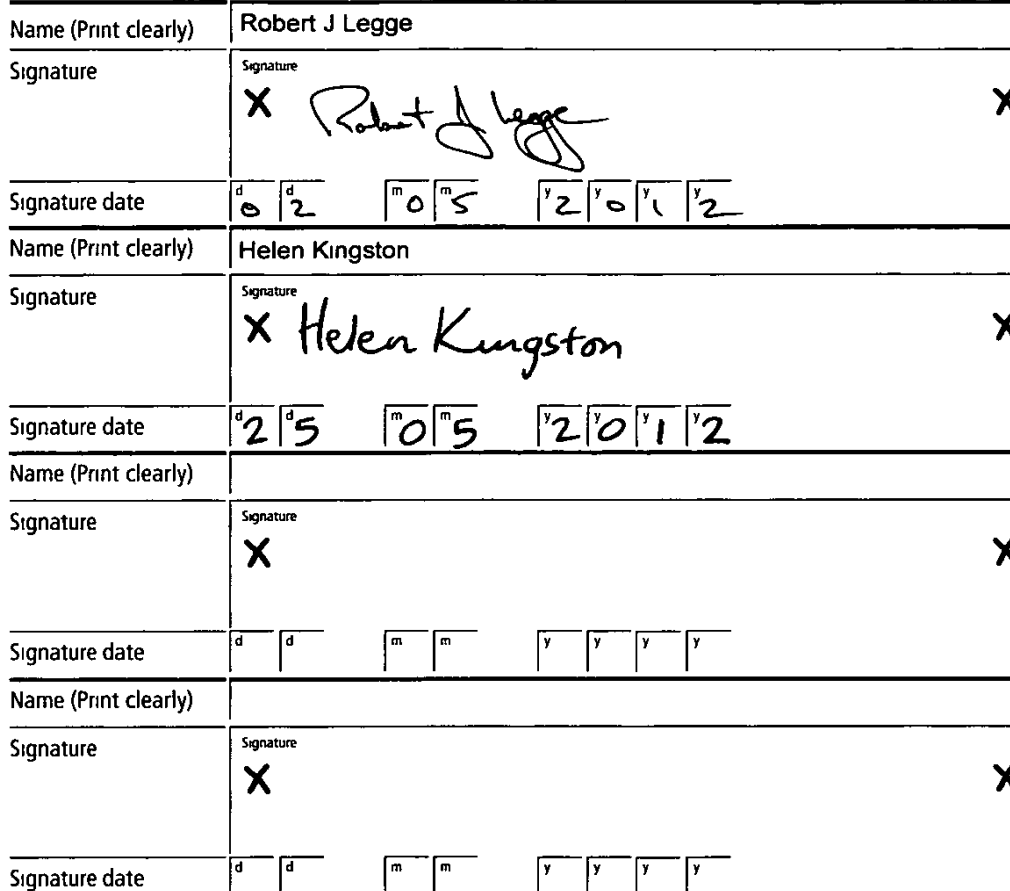 Name (Print clearly) Robert J Legge
Signature Signature
X Robert J Legge X
Signature date d 0 d 2 m 0 m 5 y 2 y 0 y 1 y 2
Name (Print clearly) Helen Kingston
Signature Signature
X Helen Kingston X
Signature date d 2 d 5 m 0 m 5 y 2 y 0 y 1 y 2
Name (Print clearly)
Signature Signature
X X
Signature date d d m m y y y y
Name (Print clearly)
Signature Signature
X X
Signature date d d m m y y y y